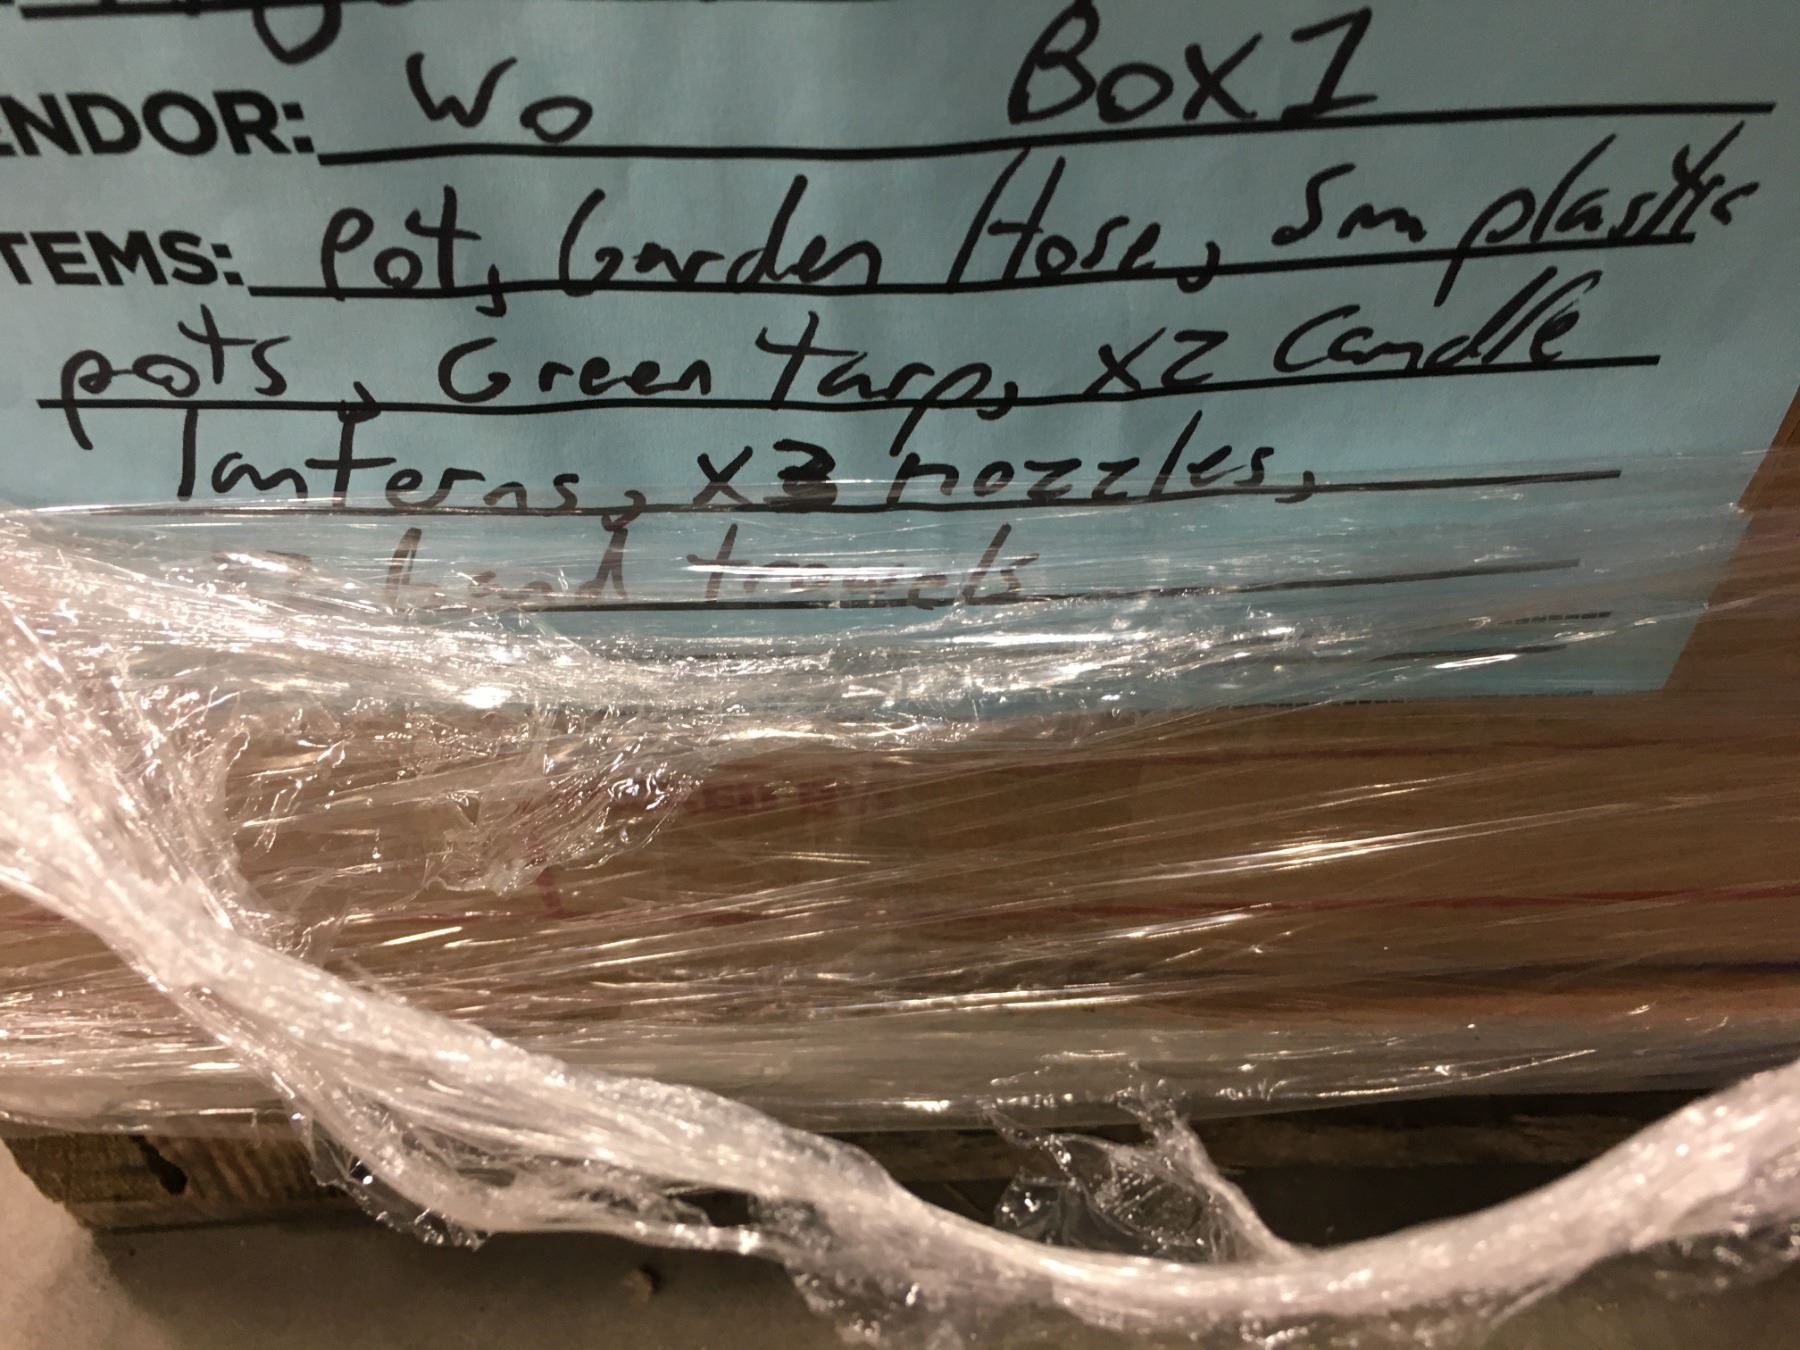 ENDOR: Wo Box 1
TEMS: Pot, Garden Hose, Sm plastic
pots, Green tarp, x2 Candle
lanterns, x3 nozzles,
hand trowels